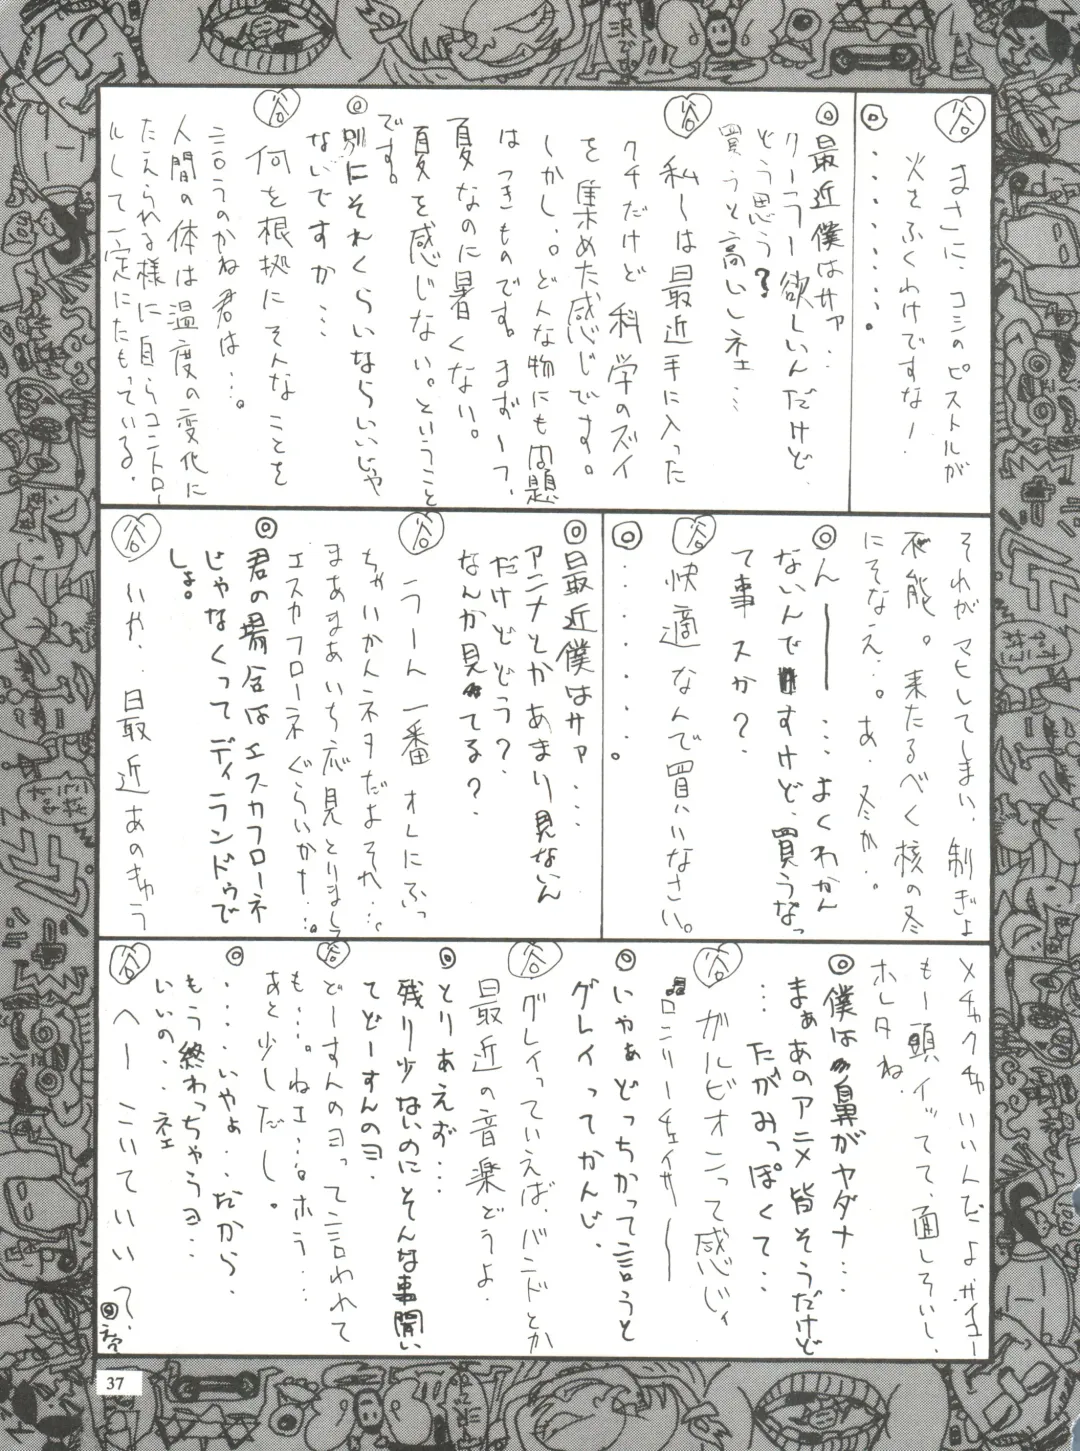 谷 まさに、コシのピストルが
火をふくわけですな!
◎・・・・・・・・・。
◎最近僕はサァ…
クーラー欲しいんだけど、
どう思う?
買うと高いしネェ…
谷 私しは最近手に入った
クチだけど科学のズイ
を集めた感じです。
しかし、。どんな物にも問題
はつきものです。まず一つ、
夏なのに暑くない。
夏を感じない。ということ
です。
◎別にそれくらいならいいじゃ
ないですか…
谷 何を根拠にそんなことを
言うのかね君は…。
人間の体は温度の変化に
たえられる様に自らコントロー
ルして一定にたもっている。
それがマヒしてしまい、制ぎょ
不能。来たるべく核の冬
にそなえ…。あ、冬か・。
◎んー…よくわかん
ないんですけど、買うなっ
て事スか?
谷 快適なんで買いなさい。
◎・・・・・・・。
◎最近僕はサァ…
アニメとかあまり見ないん
だけどどう?
なんか見てる?
谷 うーん一番オレにふっ
ちゃいかんネタだよそれ…。
まあまあいち応見とりまし
エスカフローネぐらいかナ…。
◎君の場合はエスカフローネ
じゃなくってディランドゥで
しょ。
谷 いや・・最近あのきゅう
メチャクチャいいんだよサイコー
もー頭イッてて、面しろいし、
ホレタね
◎僕は鼻がヤダナ…
まぁあのアニメ皆そうだけど
…たがみっぽくて…
谷 ガルビオンって感じィ
♫ロンリーチェイサー
◎いやぁどっちかって言うと
グレイってかんじ、
谷 グレイっていえば、バンドとか
最近の音楽どうよ、
◎とりあえず…
残り少ないのにそんな事聞い
てどーすんのヨ
谷 どーすんのヨって言われて
も…。ねェ…。ホう…
あと少しだし。
◎・・・いやぁ・・だから、
もう終わっちゃうヨ・・
いいの・・ネェ
谷 へー こいていいっ?
37